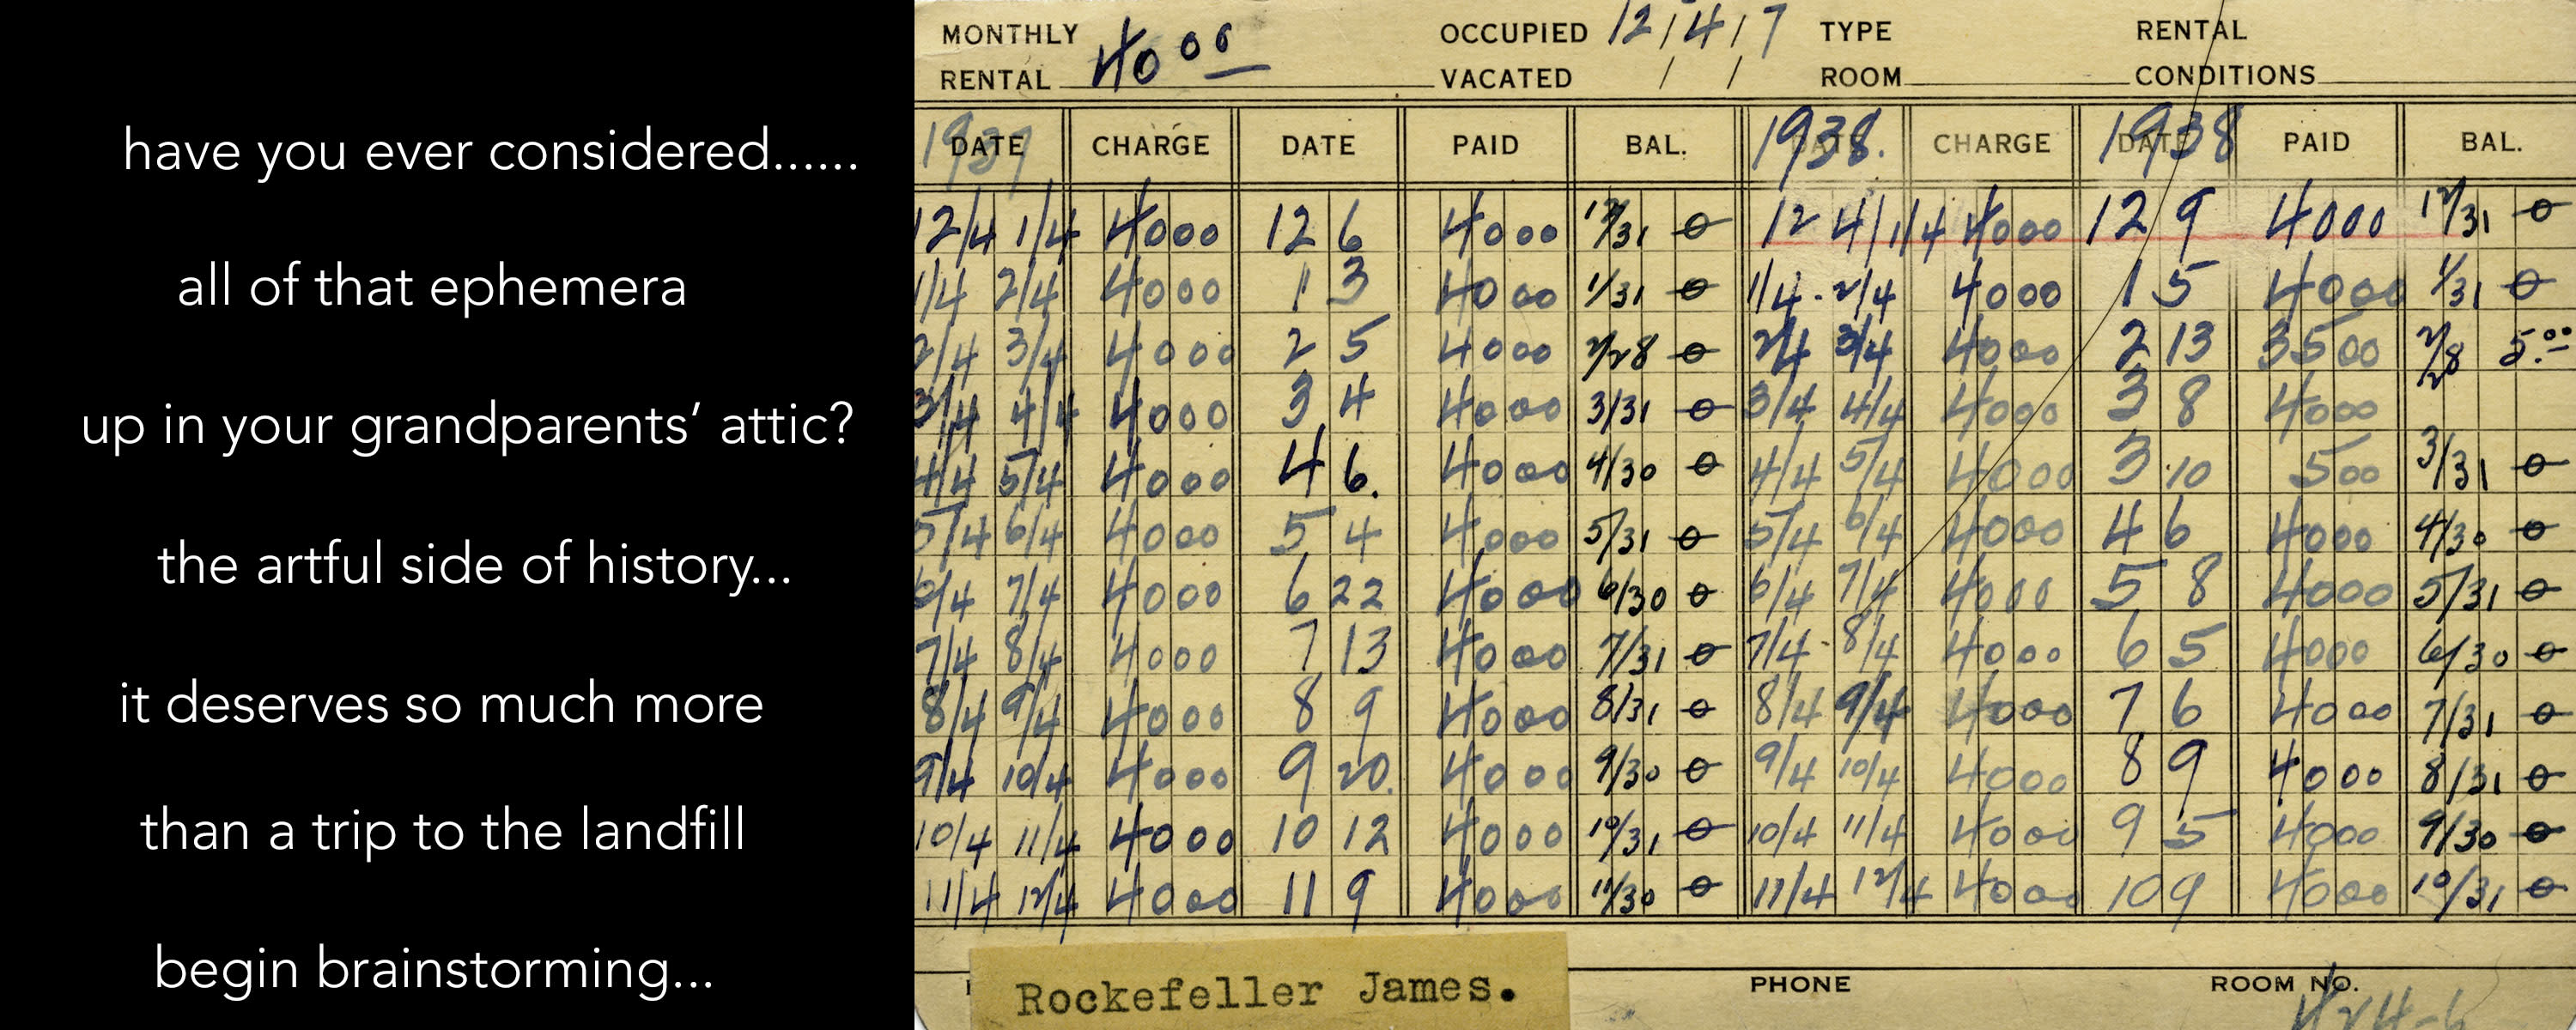 have you ever considered......
all of that ephemera
up in your grandparents’ attic?
the artful side of history...
it deserves so much more
than a trip to the landfill
begin brainstorming...
MONTHLY RENTAL 40 00 OCCUPIED 12/4/7 TYPE ROOM RENTAL CONDITIONS
VACATED / /
DATE CHARGE DATE PAID BAL. 1938. DATE CHARGE 1938 DATE PAID BAL.
12/4 1/4 4000 12 6 4000 12/31 0 12 4/1/4 4000 12 9 4000 12/31 0
1/4 2/4 4000 1 3 4000 1/31 0 1/4-2/4 4000 1 5 4000 1/31 0
2/4 3/4 4000 2 5 4000 2/28 0 2/4 3/4 4000 2 13 3500 2/28 5.00
3/4 4/4 4000 3 4 4000 3/31 0 3/4 4/4 4000 3 8 4000
4/4 5/4 4000 4 6. 4000 4/30 0 4/4 5/4 4000 3 10 500 3/31 0
5/4 6/4 4000 5 4 4000 5/31 0 5/4 6/4 4000 4 6 4000 4/30 0
6/4 7/4 4000 6 22 4000 6/30 0 6/4 7/4 4000 5 8 4000 5/31 0
7/4 8/4 4000 7 13 4000 7/31 0 7/4-8/4 4000 6 5 4000 6/30 0
8/4 9/4 4000 8 9 4000 8/31 0 8/4 9/4 4000 7 6 4000 7/31 0
9/4 10/4 4000 9 20. 4000 9/30 0 9/4 10/4 4000 8 9 4000 8/31 0
10/4 11/4 4000 10 12 4000 10/31 0 10/4 11/4 4000 9 5 4000 9/30 0
11/4 12/4 4000 11 9 4000 11/30 0 11/4 12/4 4000 10 9 4000 10/31 0
Rockefeller James. PHONE ROOM NO.